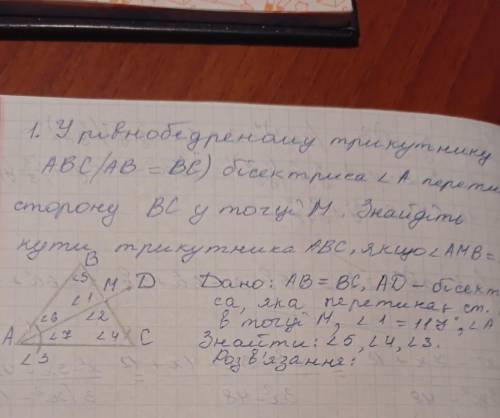 1. У рівнобедреному трикутнику
ABC (AB = BC) бісектриса ∠A перети
сторону BC у точці M. Знайдіть
кути трикутника ABC, якщо ∠AMB =
B
∠5
M D
∠1
∠6 ∠2
A ∠7 ∠4 C
∠3
Дано: AB = BC, AD – бісект
са, яка перетинає ст.
в точці M, ∠1 = 117°, ∠A
Знайти: ∠5, ∠4, ∠3.
Розв'язання: